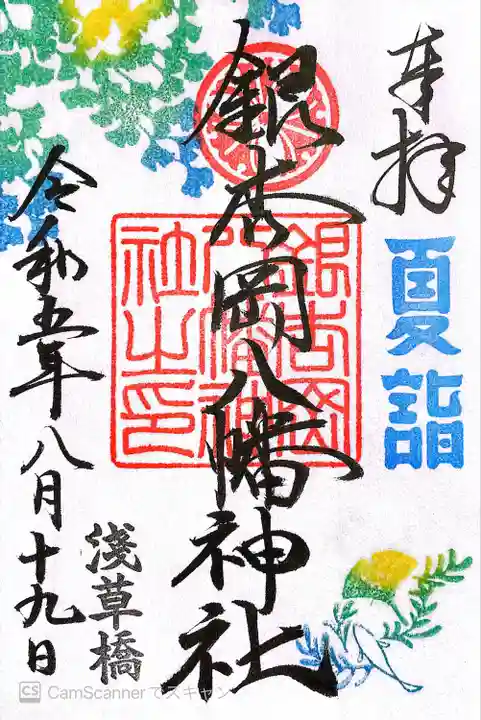 奉拝
夏詣
銀杏岡八幡神社
銀杏岡
八幡神
社之印
令和五年八月十九日
淺草橋
CS CamScannerでスキャン